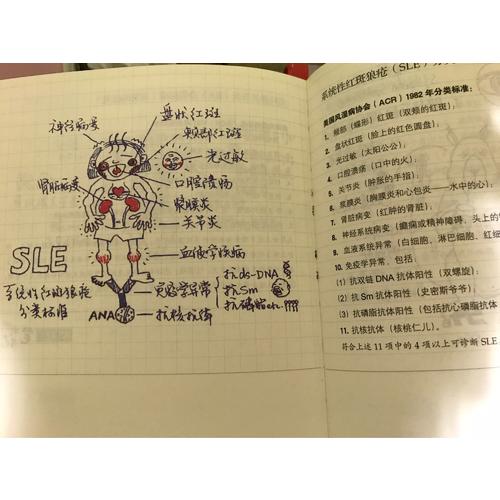 神经病变
盘状红斑
颊部红斑
光过敏
肾脏病变
口腔溃疡
浆膜炎
关节炎
血液学疾病
SLE
系统性红斑狼疮
分类标准
实验学异常
抗ds-DNA
抗Sm
抗磷脂etc.????
ANA
抗核抗体
系统性红斑狼疮(SLE)
美国风湿病协会(ACR)1982 年分类标准:
1. 颊部(蝶形)红斑(双颊的红斑);
2. 盘状红斑(脸上的红色圆盘);
3. 光过敏(太阳公公);
4. 口腔溃疡(口中的火);
5. 关节炎(肿胀的手指);
6. 浆膜炎(胸膜炎和心包炎——水中的心);
7. 肾脏病变(红肿的肾脏);
8. 神经系统病变(癫痫或精神障碍,头上的
9. 血液系统异常(白细胞、淋巴细胞、红细
10. 免疫学异常,包括:
(1) 抗双链 DNA 抗体阳性(双螺旋);
(2) 抗 Sm 抗体阳性(史密斯爷爷);
(3) 抗磷脂抗体阳性(包括抗心磷脂抗体
11. 抗核抗体(核桃仁儿)。
符合上述 11 项中的 4 项以上可诊断 SLE